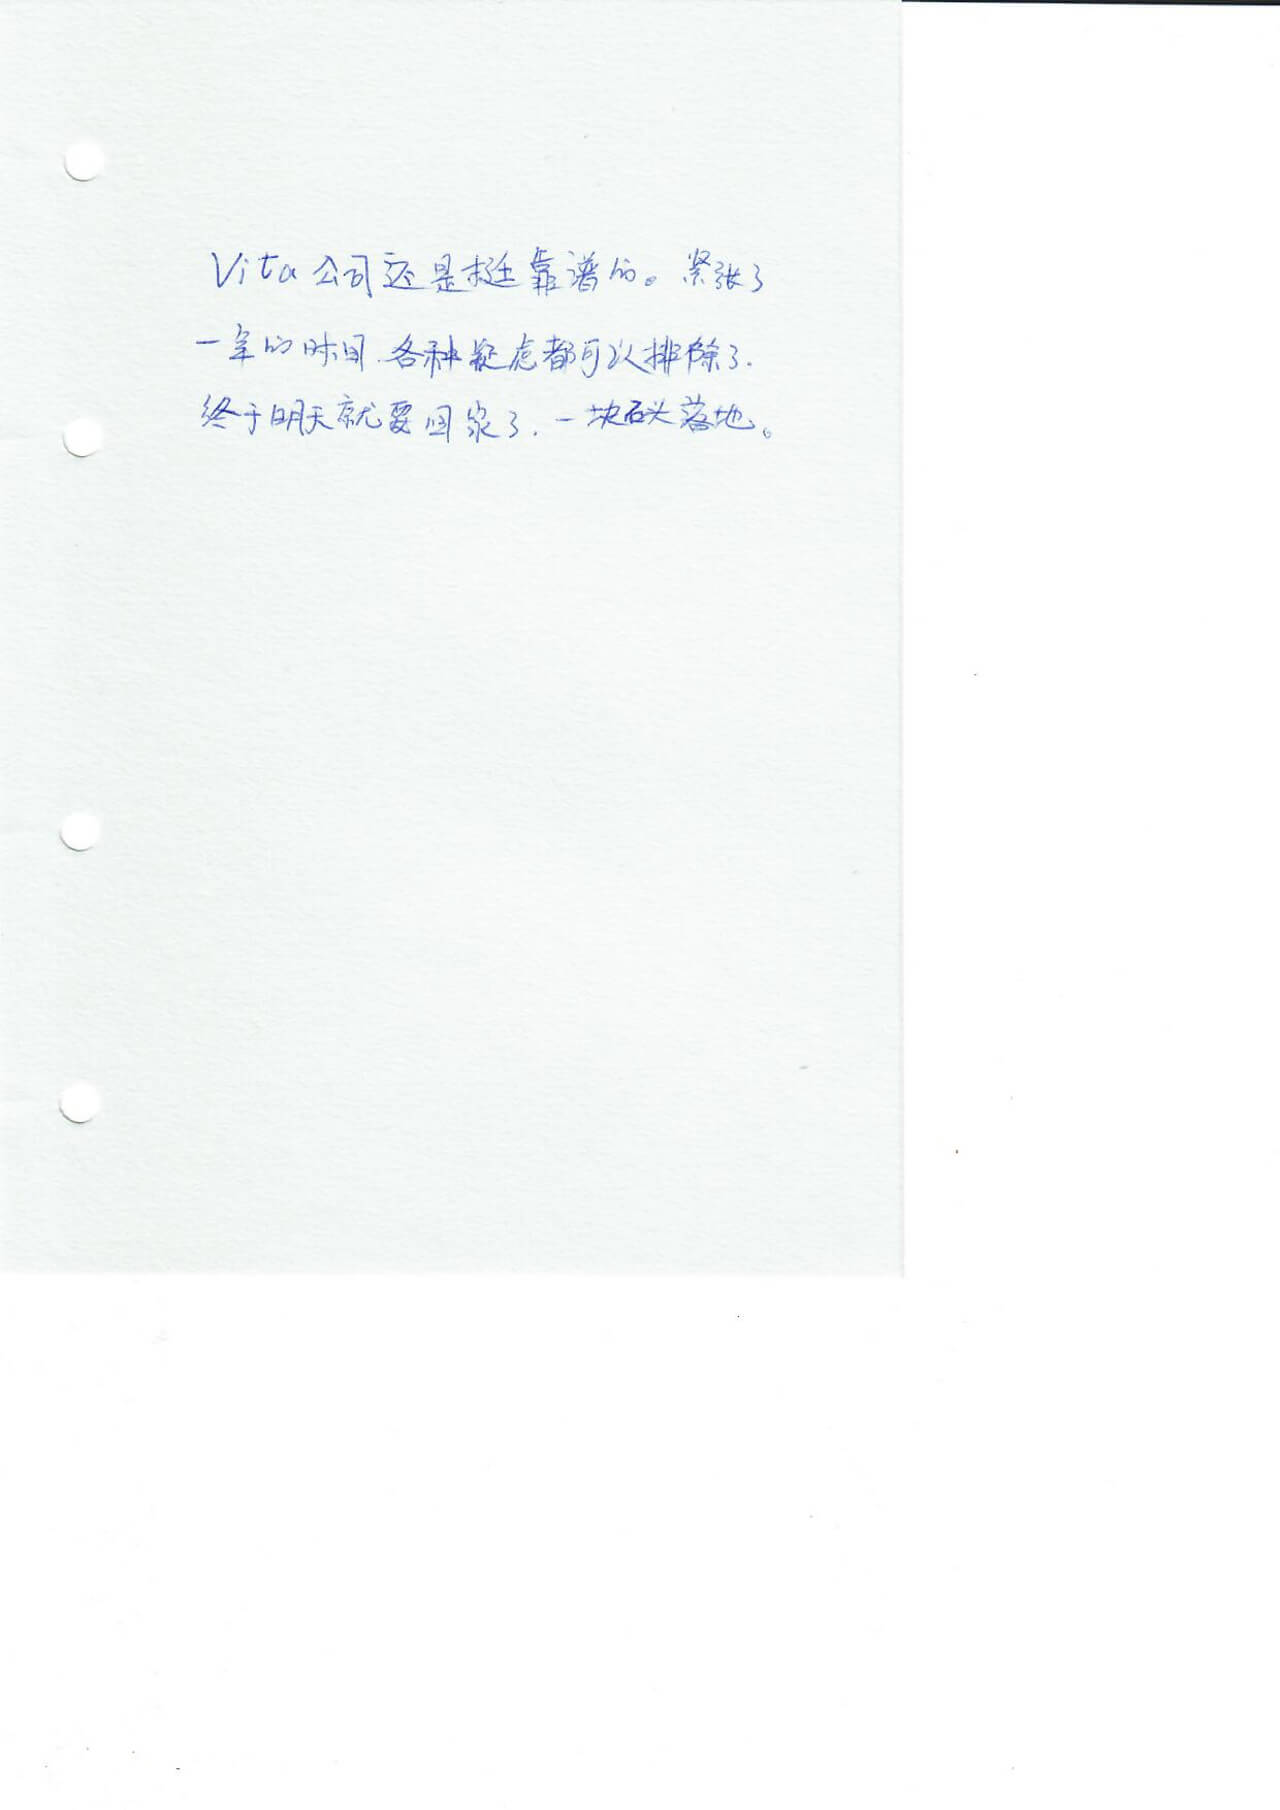 Vita公司还是挺靠谱的。紧张了
一年的时间、各种疑虑都可以排除了.
终于明天就要回家了.一块石头落地。